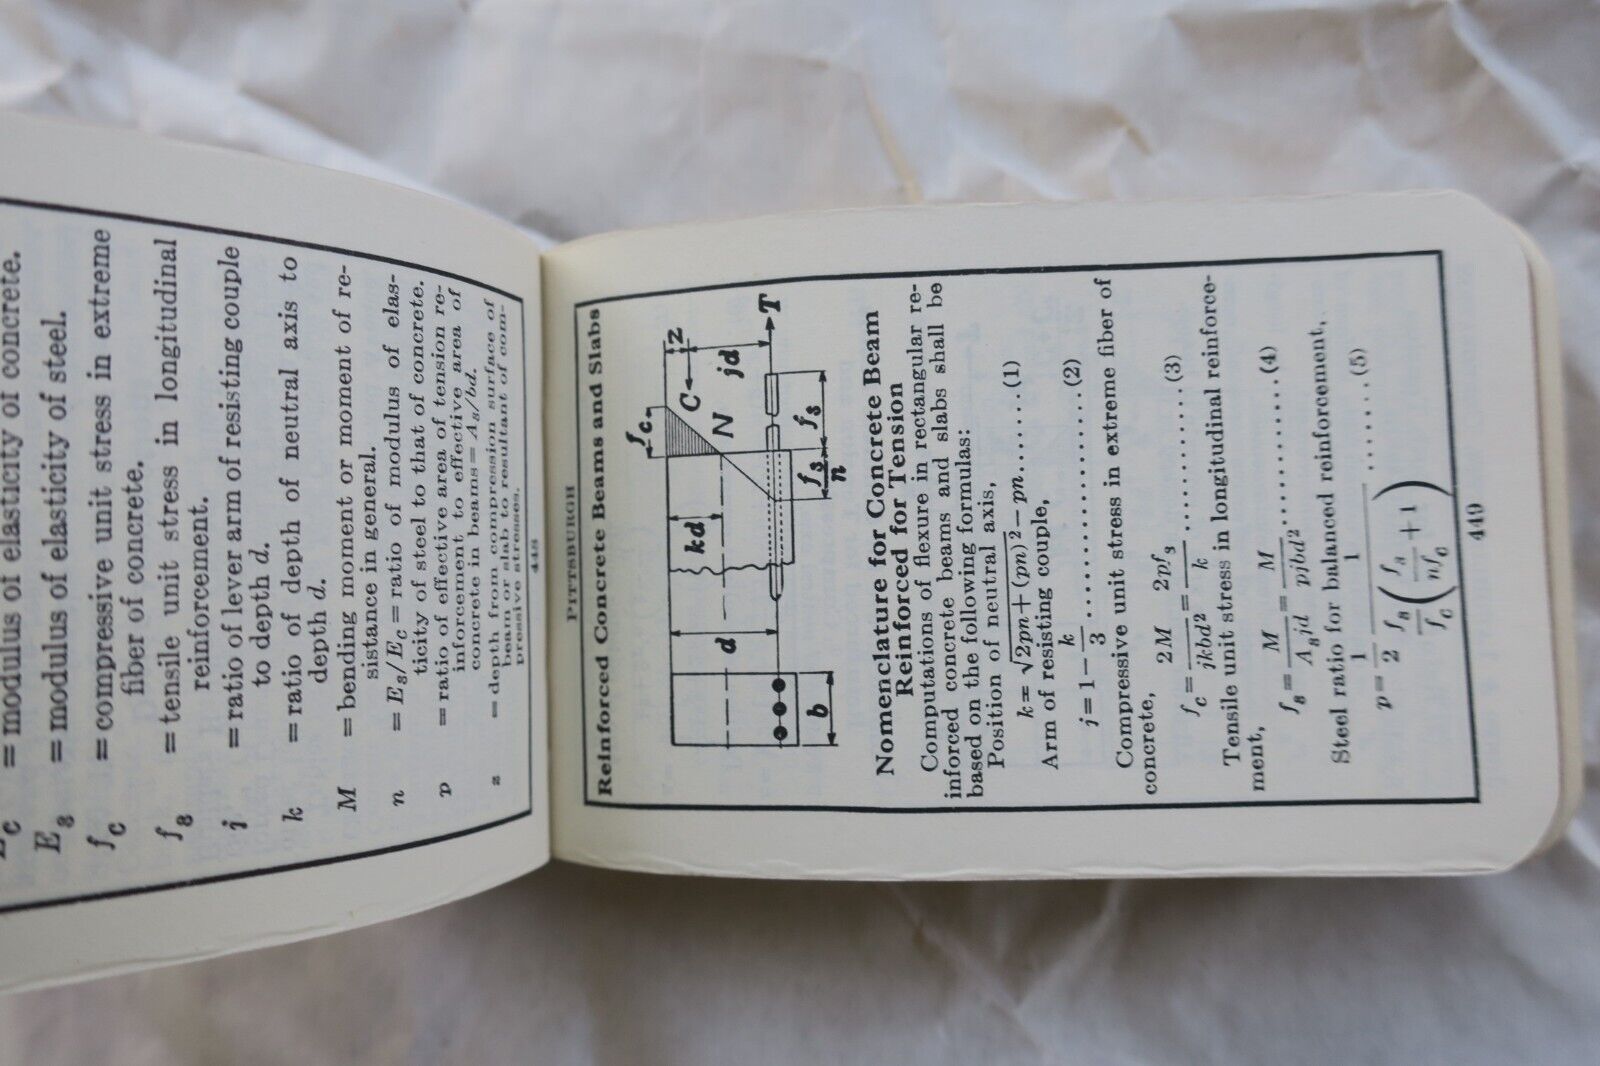 E_c = modulus of elasticity of concrete.
E_s = modulus of elasticity of steel.
f_c = compressive unit stress in extreme
fiber of concrete.
f_s = tensile unit stress in longitudinal
reinforcement.
j = ratio of lever arm of resisting couple
to depth d.
k = ratio of depth of neutral axis to
depth d.
M = bending moment or moment of re-
sistance in general.
n = E_s/E_c = ratio of modulus of elas-
ticity of steel to that of concrete.
p = ratio of effective area of tension re-
inforcement to effective area of
concrete in beams = A_s/bd.
z = depth from compression surface of
beam or slab to resultant of com-
pressive stresses.
448
PITTSBURGH
Reinforced Concrete Beams and Slabs
f_c
z
C
jd
kd
N
d
T
b
f_s/n
f_s
Nomenclature for Concrete Beam
Reinforced for Tension
Computations of flexure in rectangular re-
inforced concrete beams and slabs shall be
based on the following formulas:
Position of neutral axis,
k = √2pn + (pn)² − pn........(1)
Arm of resisting couple,
j = 1 − k/3 ....................(2)
Compressive unit stress in extreme fiber of
concrete,
f_c = 2M/jkbd² = 2pf_s/k ............(3)
Tensile unit stress in longitudinal reinforce-
ment,
f_s = M/A_sjd = M/pjbd² ............(4)
Steel ratio for balanced reinforcement,
p = 1/2 1/(f_s/f_c (f_s/nf_c + 1)) ......(5)
449